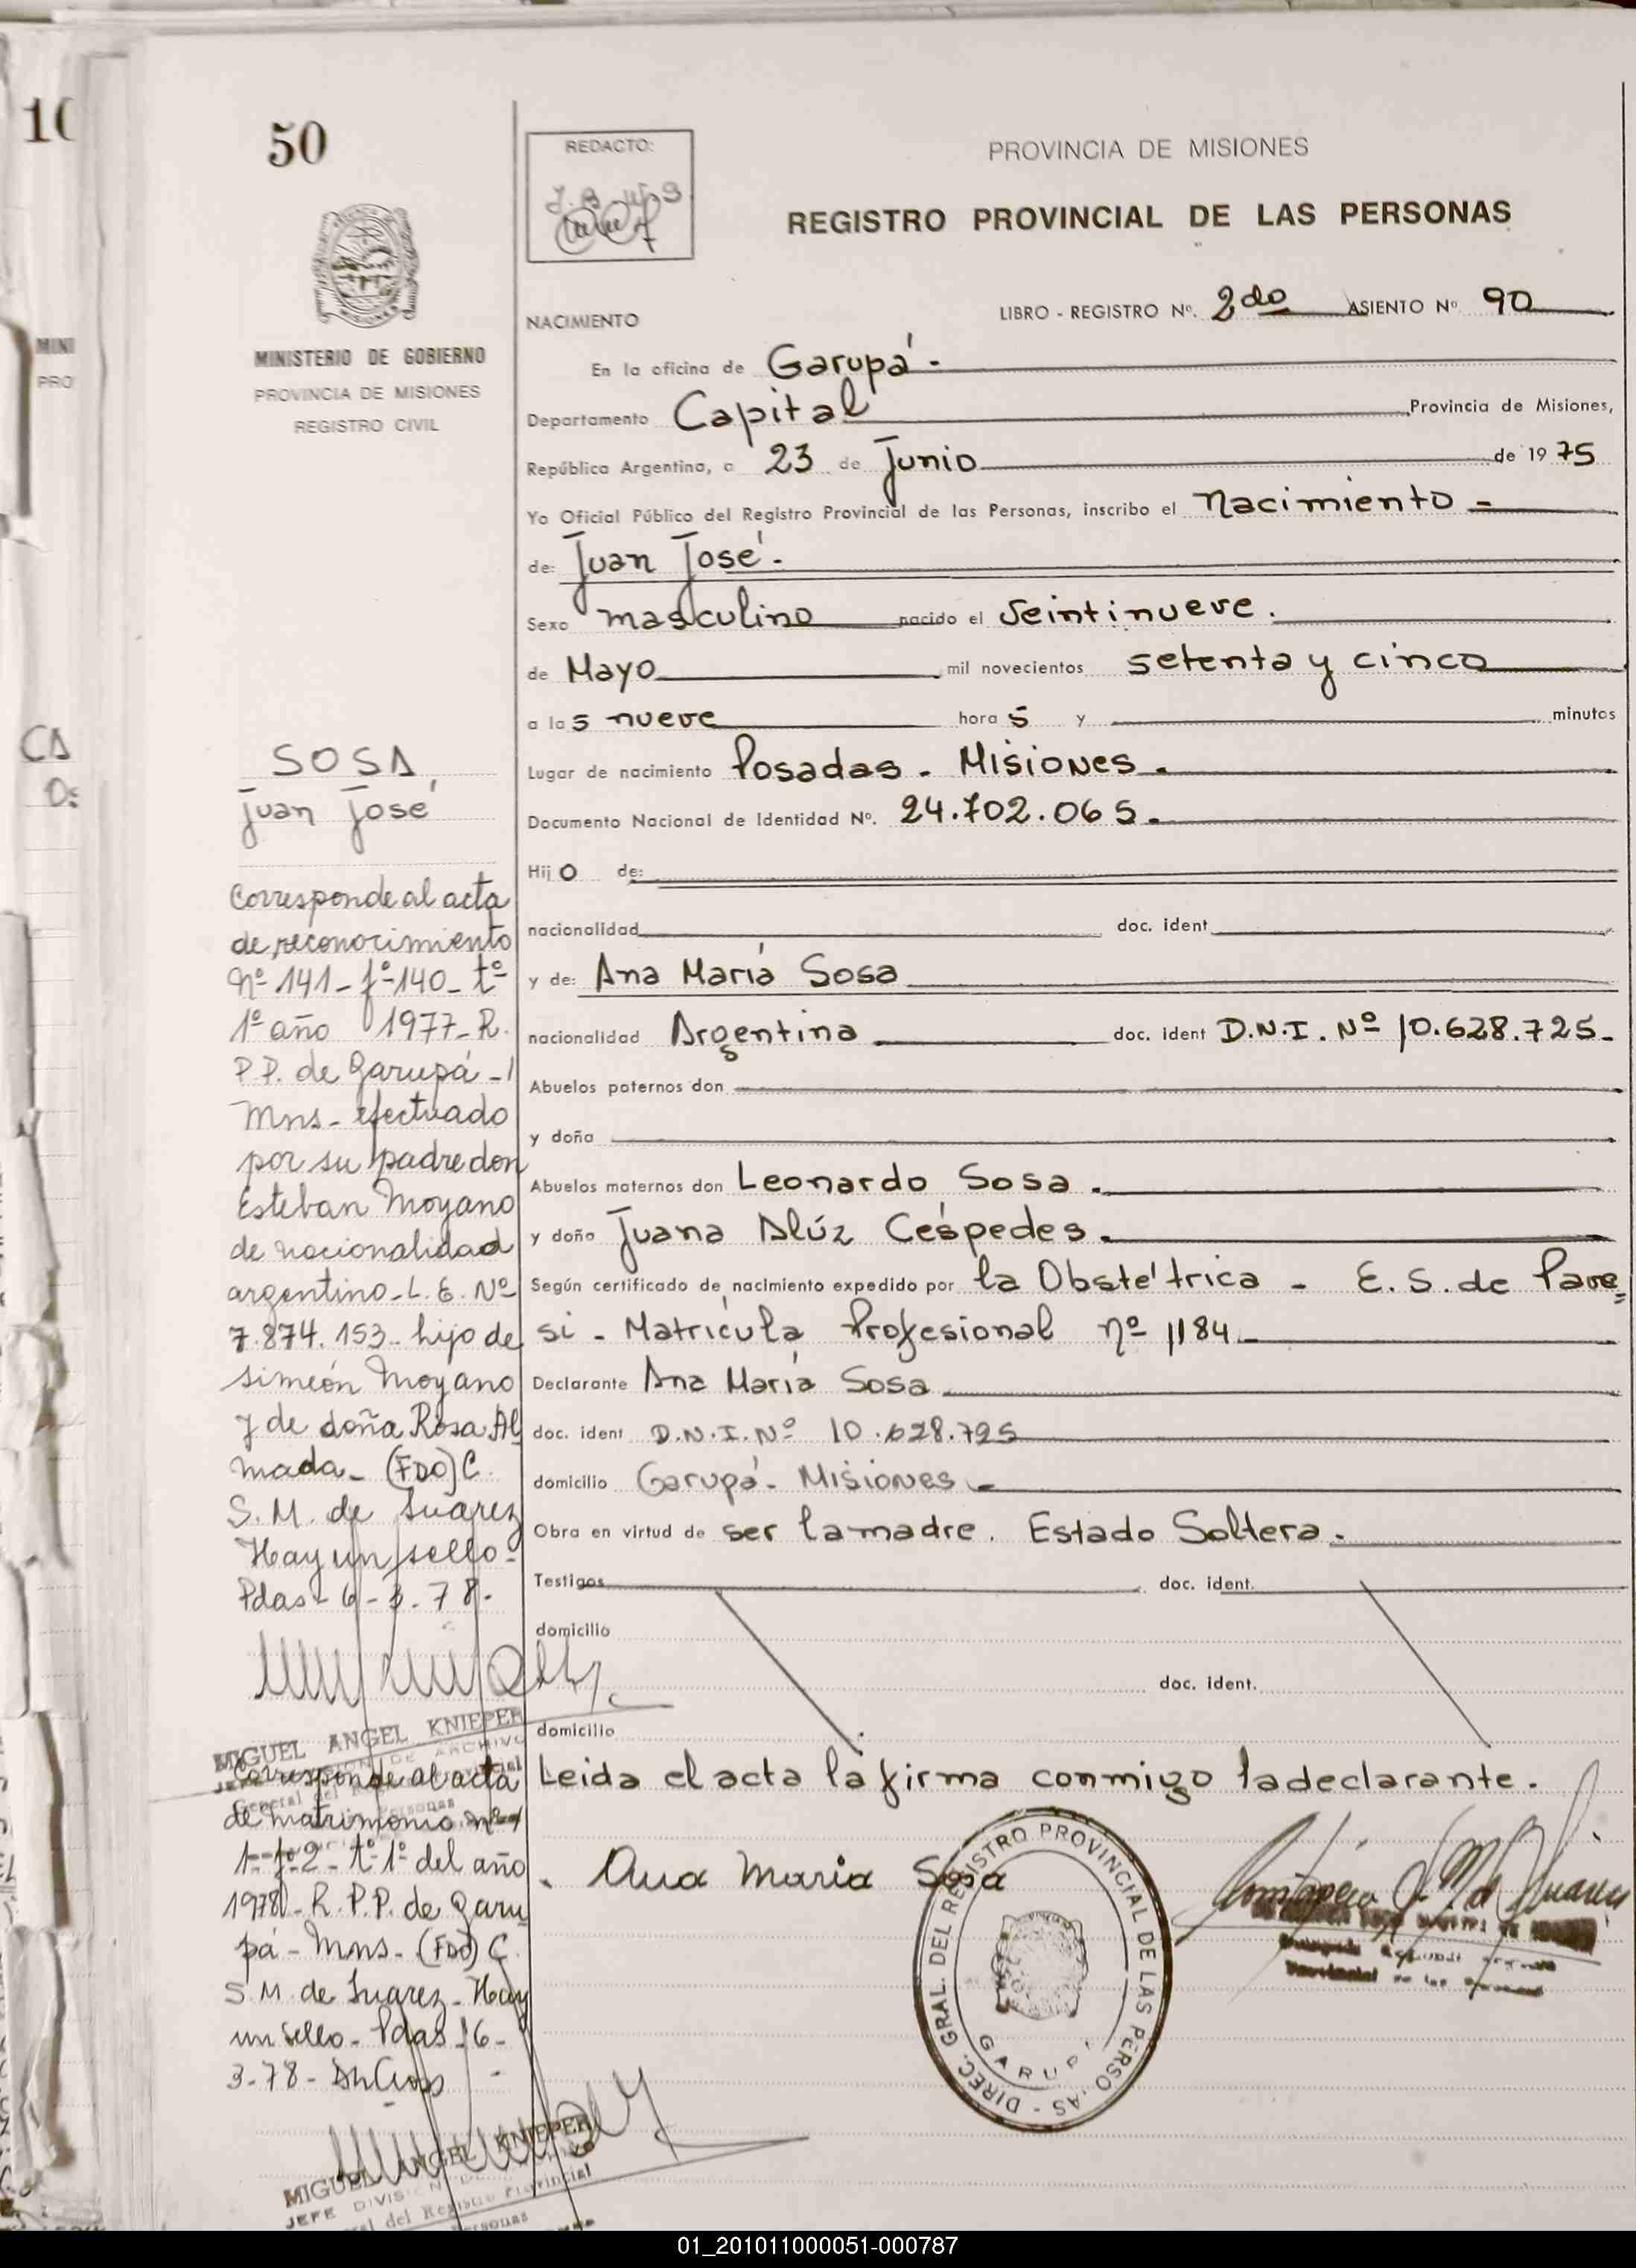 50
REDACTO:
PROVINCIA DE MISIONES
REGISTRO PROVINCIAL DE LAS PERSONAS
MINISTERIO DE GOBIERNO
PROVINCIA DE MISIONES
REGISTRO CIVIL
LIBRO - REGISTRO Nº. 2do ASIENTO Nº 90
NACIMIENTO
En la oficina de Garupá -
Departamento Capital Provincia de Misiones,
República Argentina, a 23 de Junio de 1975
Yo Oficial Público del Registro Provincial de las Personas, inscribo el Nacimiento -
de: Juan José -
Sexo masculino nacido el Veintinueve.
de Mayo mil novecientos setenta y cinco
a las nueve horas y minutos
Lugar de nacimiento Posadas - Misiones -
Documento Nacional de Identidad Nº. 24.702.065 -
Hijo de:
nacionalidad doc. ident
y de: Ana María Sosa
nacionalidad Argentina doc. ident D.N.I. Nº 10.628.725 -
Abuelos paternos don
y doña
Abuelos maternos don Leonardo Sosa -
y doña Juana Alúz Céspedes -
Según certificado de nacimiento expedido por la Obstétrica - E. S. de Pave=
si - Matrícula Profesional nº 1184
Declarante Ana María Sosa
doc. ident D.N.I. Nº 10.628.725
domicilio Garupá - Misiones -
Obra en virtud de ser la madre. Estado Soltera -
Testigos doc. ident.
domicilio
doc. ident.
domicilio
Leida el acta la firma conmigo la declarante.
Ana Maria Sosa
DIREC. GRAL. DEL REGISTRO PROVINCIAL DE LAS PERSONAS -
GARUPA
SOSA,
Juan José
Corresponde al acta
de reconocimiento
Nº 141 - fº 140 - tº
1º año 1977 - R.
P.P. de Garupá -
Mns - efectuado
por su padre don
Esteban Moyano
de nacionalidad
argentino - L. E. Nº
7.874.153 - hijo de
Simeón Moyano
y de doña Rosa Al
mada - (FDO) C.
S. M. de Suarez
Hay un sello -
Pdas - 6 - 3 - 78 -
MIGUEL ANGEL KNIEPER
Corresponde al acta
de matrimonio nº
1 - fº 2 - tº 1º del año
1978 - R. P. P. de Garu
pá - Mns - (FDO) C.
S. M. de Suarez - Hay
un sello - Pdas 16 -
3 - 78 -
MIGUEL ANGEL KNIEPER
JEFE DIVISION
del Registro Provincial
Personas
01_201011000051-000787